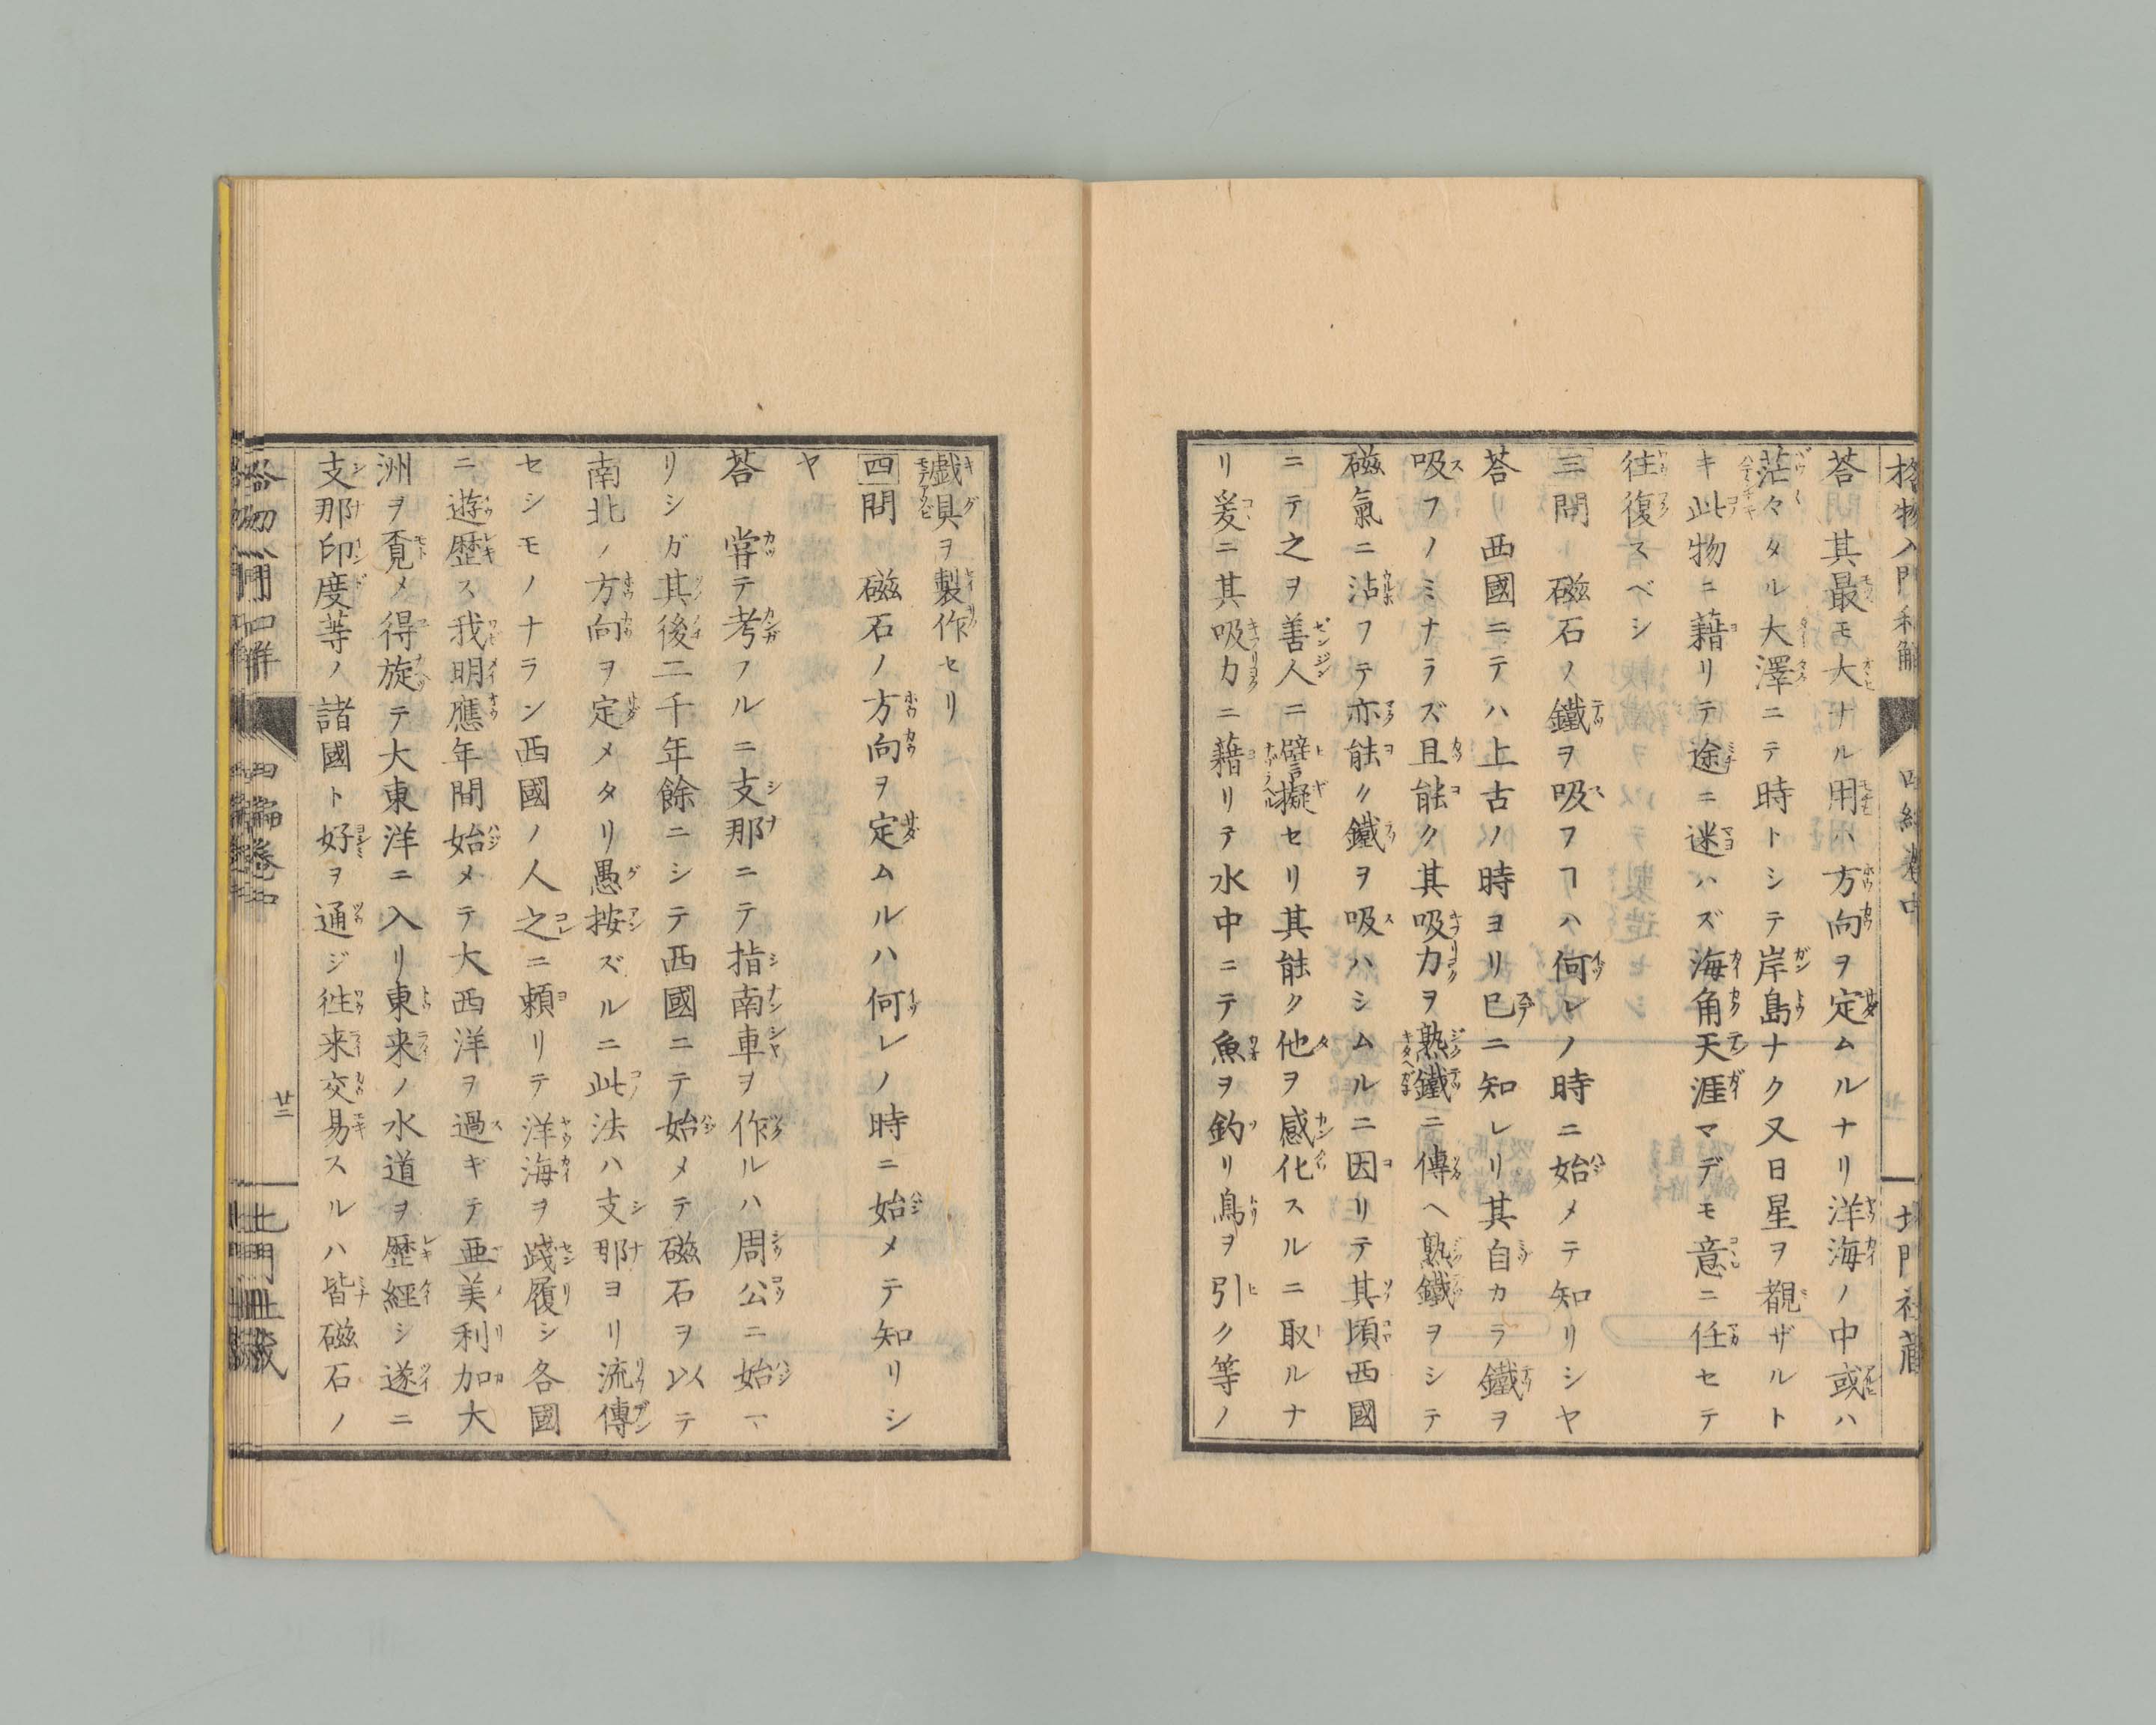 答 其最モ大ナル用ハ方向ヲ定ムルナリ洋海ノ中或ハ
茫々タル大澤ニテ時トシテ岸島ナク又日星ヲ覩ザルト
キ此物ニ藉リテ途ニ迷ハズ海角天涯マデモ意ニ任セテ
往復スベシ
三問 磁石ノ鐵ヲ吸フヿハ何レノ時ニ始メテ知リシヤ
答 西國ニテハ上古ノ時ヨリ已ニ知レリ其自カラ鐵ヲ
吸フノミナラズ且能ク其吸力ヲ熟鐵ニ傳ヘ熟鐵ヲシテ
磁氣ニ沾フテ亦能ク鐵ヲ吸ハシムルニ因リテ其頃西國
ニテ之ヲ善人ニ譬擬セリ其能ク他ヲ感化スルニ取ルナ
リ爰ニ其吸力ニ藉リテ水中ニテ魚ヲ釣リ鳥ヲ引ク等ノ
戯具ヲ製作セリ
四問 磁石ノ方向ヲ定ムルハ何レノ時ニ始メテ知リシ
ヤ
答 嘗テ考フルニ支那ニテ指南車ヲ作ルハ周公ニ始マ
リシガ其後二千年餘ニシテ西國ニテ始メテ磁石ヲ以テ
南北ノ方向ヲ定メタリ愚按ズルニ此法ハ支那ヨリ流傳
セシモノナラン西國ノ人之ニ頼リテ洋海ヲ踐履シ各國
ニ遊歴ス我明應年間始メテ大西洋ヲ過ギテ亜美利加大
洲ヲ覔メ得旋テ大東洋ニ入リ東来ノ水道ヲ歴經シ遂ニ
支那印度等ノ諸國ト好ヲ通ジ徃来交易スルハ皆磁石ノ
格物入門和解
廿二
北門社藏